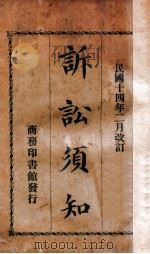 民國十四年二月改訂
訴訟須知
商務印書館發行
mtoou.info